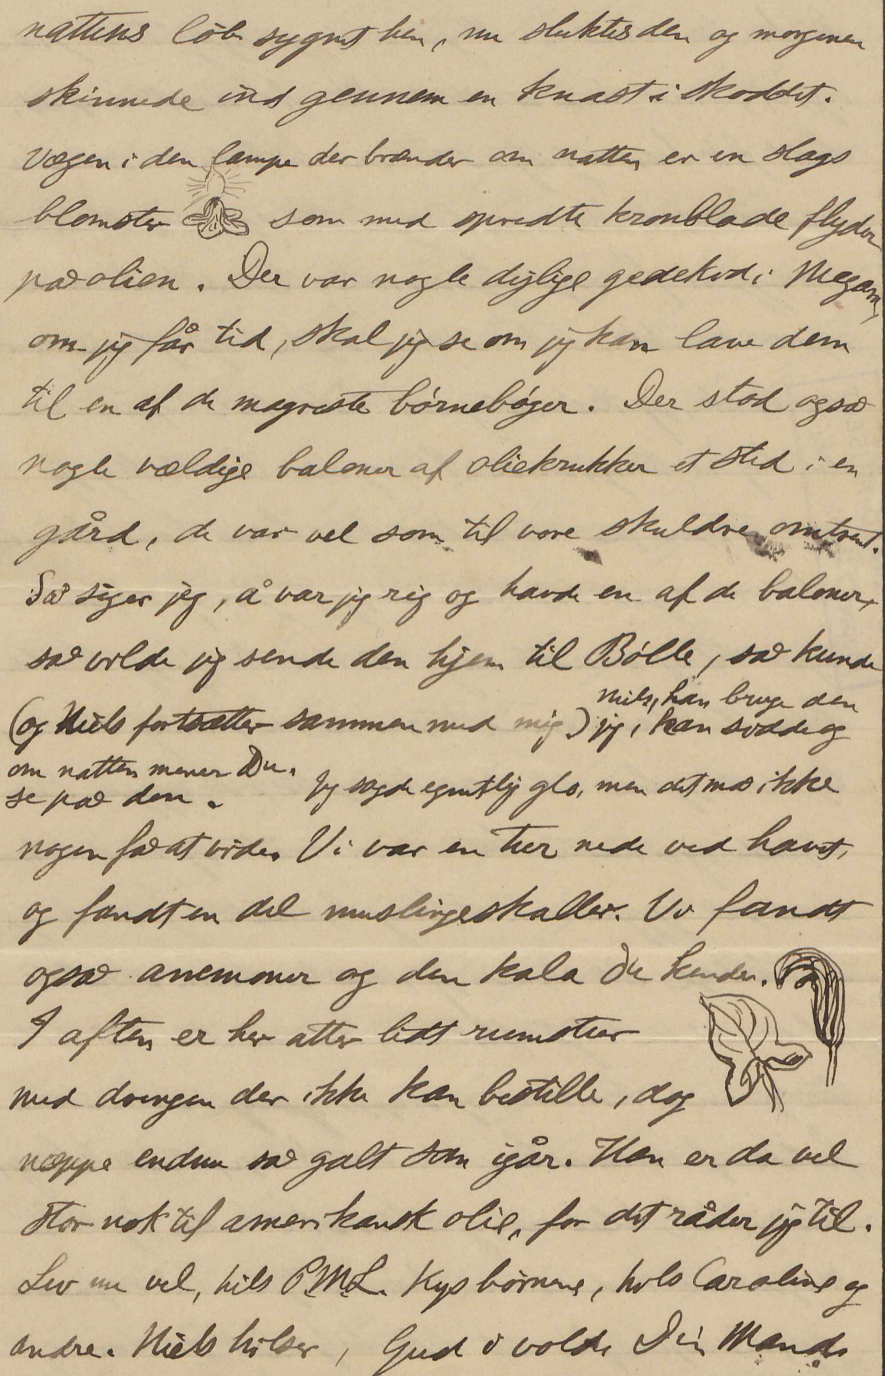 nattens løb sygnet hen, nu sluktes den og morgenen
skinnede ind gennem en knast i skoddet.
Vægen i den lampe der brænder om natten er en slags
blomster som med spredte kronblade flyder
paa olien. Der var nogle dejlige gedekid i Megara,
om jeg får tid, skal jeg se om jeg kan lave dem
til en af de magreste børnebøger. Der stod ogsaa
nogle vældige baloner af oliekrukker et sted i en
gård, de var vel som til vore skuldre omtrent.
Saa siger jeg, å var jeg rig og havde en af de baloner,
saa vilde jeg sende den hjem til Bølle, saa kunde
Niels, han bruge den
(og Niels fortsætter sammen med mig) jeg, kan sidde og
om natten mener Du.
se paa den. Jeg sagde egentlig glo, men det maa ikke
nogen faa at vide. Vi var en Tur nede ved havet,
og fandt en del muslingeskaller. Vi fandt
ogsaa anemoner og den kala Du kender.
I aften er her atter lidt rumstier
med drengen der ikke kan bestille, dog
næppe endnu saa galt som igår. Han er da vel
stor nok til amerikansk olie, for det råder jeg til.
Lev nu vel, hils P.M.L. Kys børnene, hils Caroline og
andre. Niels hilser, Gud i vold. Din Mand.